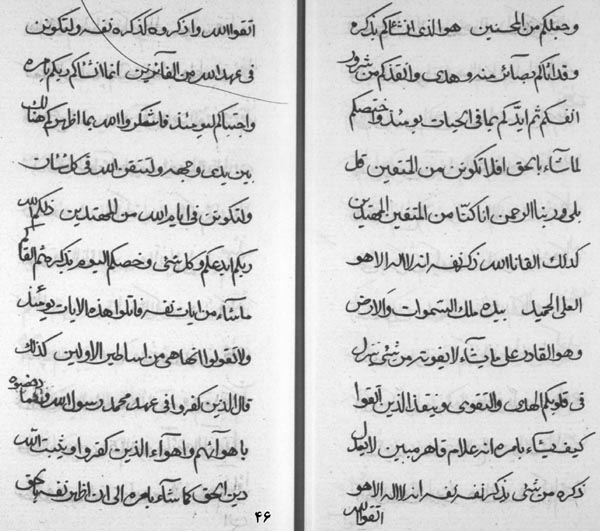 وجعلكم من المحسنين هو الذی انشاكم بذكره
وقد اتاكم بصآئر منه وهدی وانقذكم من شرور
انفسكم ثم ايدكم بما فی الحيات يومئذ واختصكم
لما شآء بالحق افلا تكونن من المتقين قل
بلی وربنا الرحمن انا كنا من المتقين المهتدين
كذلك القانا الله ذكر نفسه انه لا اله الا هو
العلی الجميل بيده ملك السموات والارض
وهو القادر علی ما يشآء لا يفوته من شئ ينزل
فی قلوبكم الهدی والتقوی وينقذ الذين اتقوا
كيف يشآء بامره انه علام قاهر مبين لا يعدل
ذكره من شئ بذكر نفسه نفسه انه لا اله الا هو
اتقوا الله
اتقوا الله واذكروه كذكره نفسه ولتكونن
فی عهد الله من الفآئزين انما انشاكم ربكم بامره
واجتباكم ليومئذ فاشكروا الله بما اظهركم هنالك
بين يدی وجهه ولتتقن الله فی كل شان
ولتكونن فی ايام الله من المهتدين ذلكم الله
ربكم ابدعكم وكل شئ وخصكم اليوم بذكره ثم القا
ما شآء من ايات نفسه فاتلوا هذه الايات يومئذ
ولا تقولوا انها هی من اساطير الاولين كذلك
قال الذين كفروا فی عهد محمد رسول الله
باهوآئهم واهوآء الذين كفروا ويثبت الله
دين الحق كما شآء بامره الی ان اظهر نفسه بالحق
۴۶